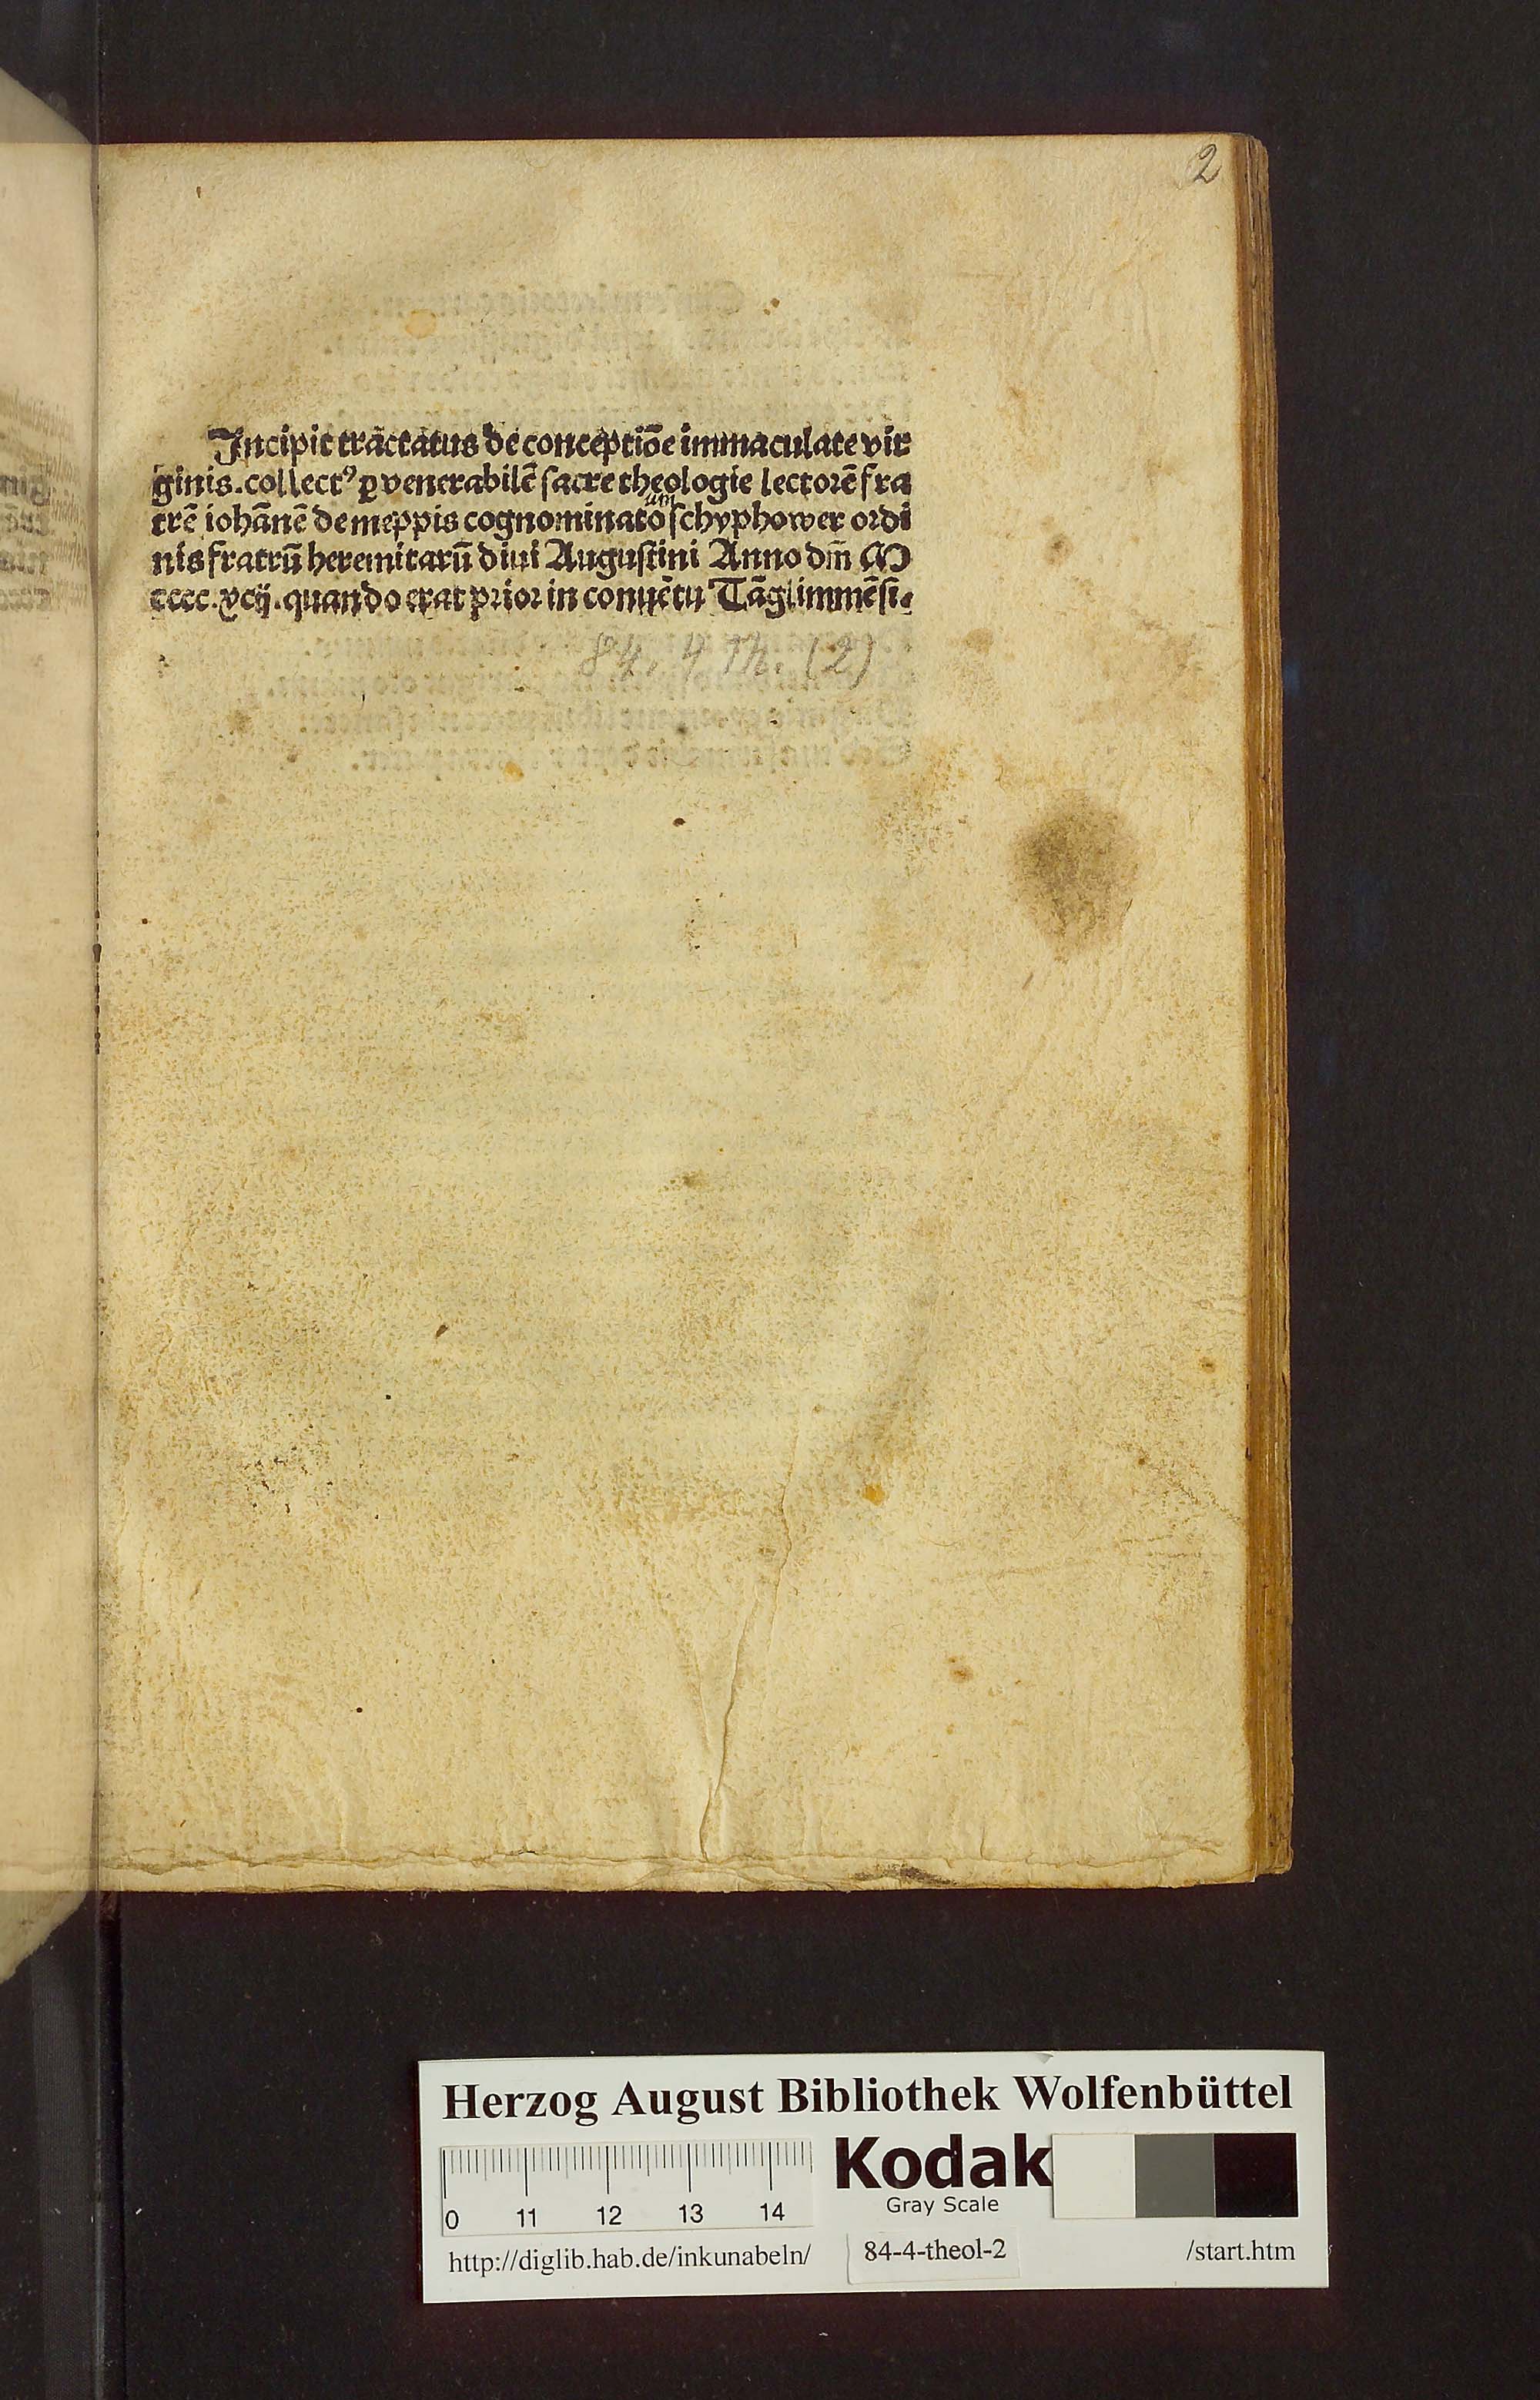 2
Incipit tractatus de conceptiõe immaculate vir
ginis. collectꝰ ꝑ venerabilẽ sacre theologie lectorẽ fra
um
trẽ iohãnẽ de meppis cognominato schyphower ordi
nis fratrũ heremitarũ diui Augustini Anno dm̃ M
cccc. xcij. quando erat prior in conuẽtu Tãglimmẽsi.
84, 4 Th. (2)
Herzog August Bibliothek Wolfenbüttel
Kodak
Gray Scale
0 11 12 13 14
http://diglib.hab.de/inkunabeln/ 84-4-theol-2 /start.htm